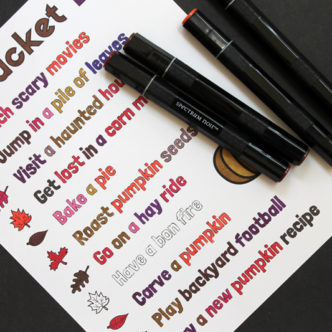 ucket
ch scary movies
Jump in a pile of leaves
Visit a haunted hou
Get lost in a corn m
Bake a pie
Roast pumpkin seeds
Go on a hay ride
Have a bon fire
Carve a pumpkin
Play backyard football
y a new pumpkin recipe
SPECTRUM NOIR™